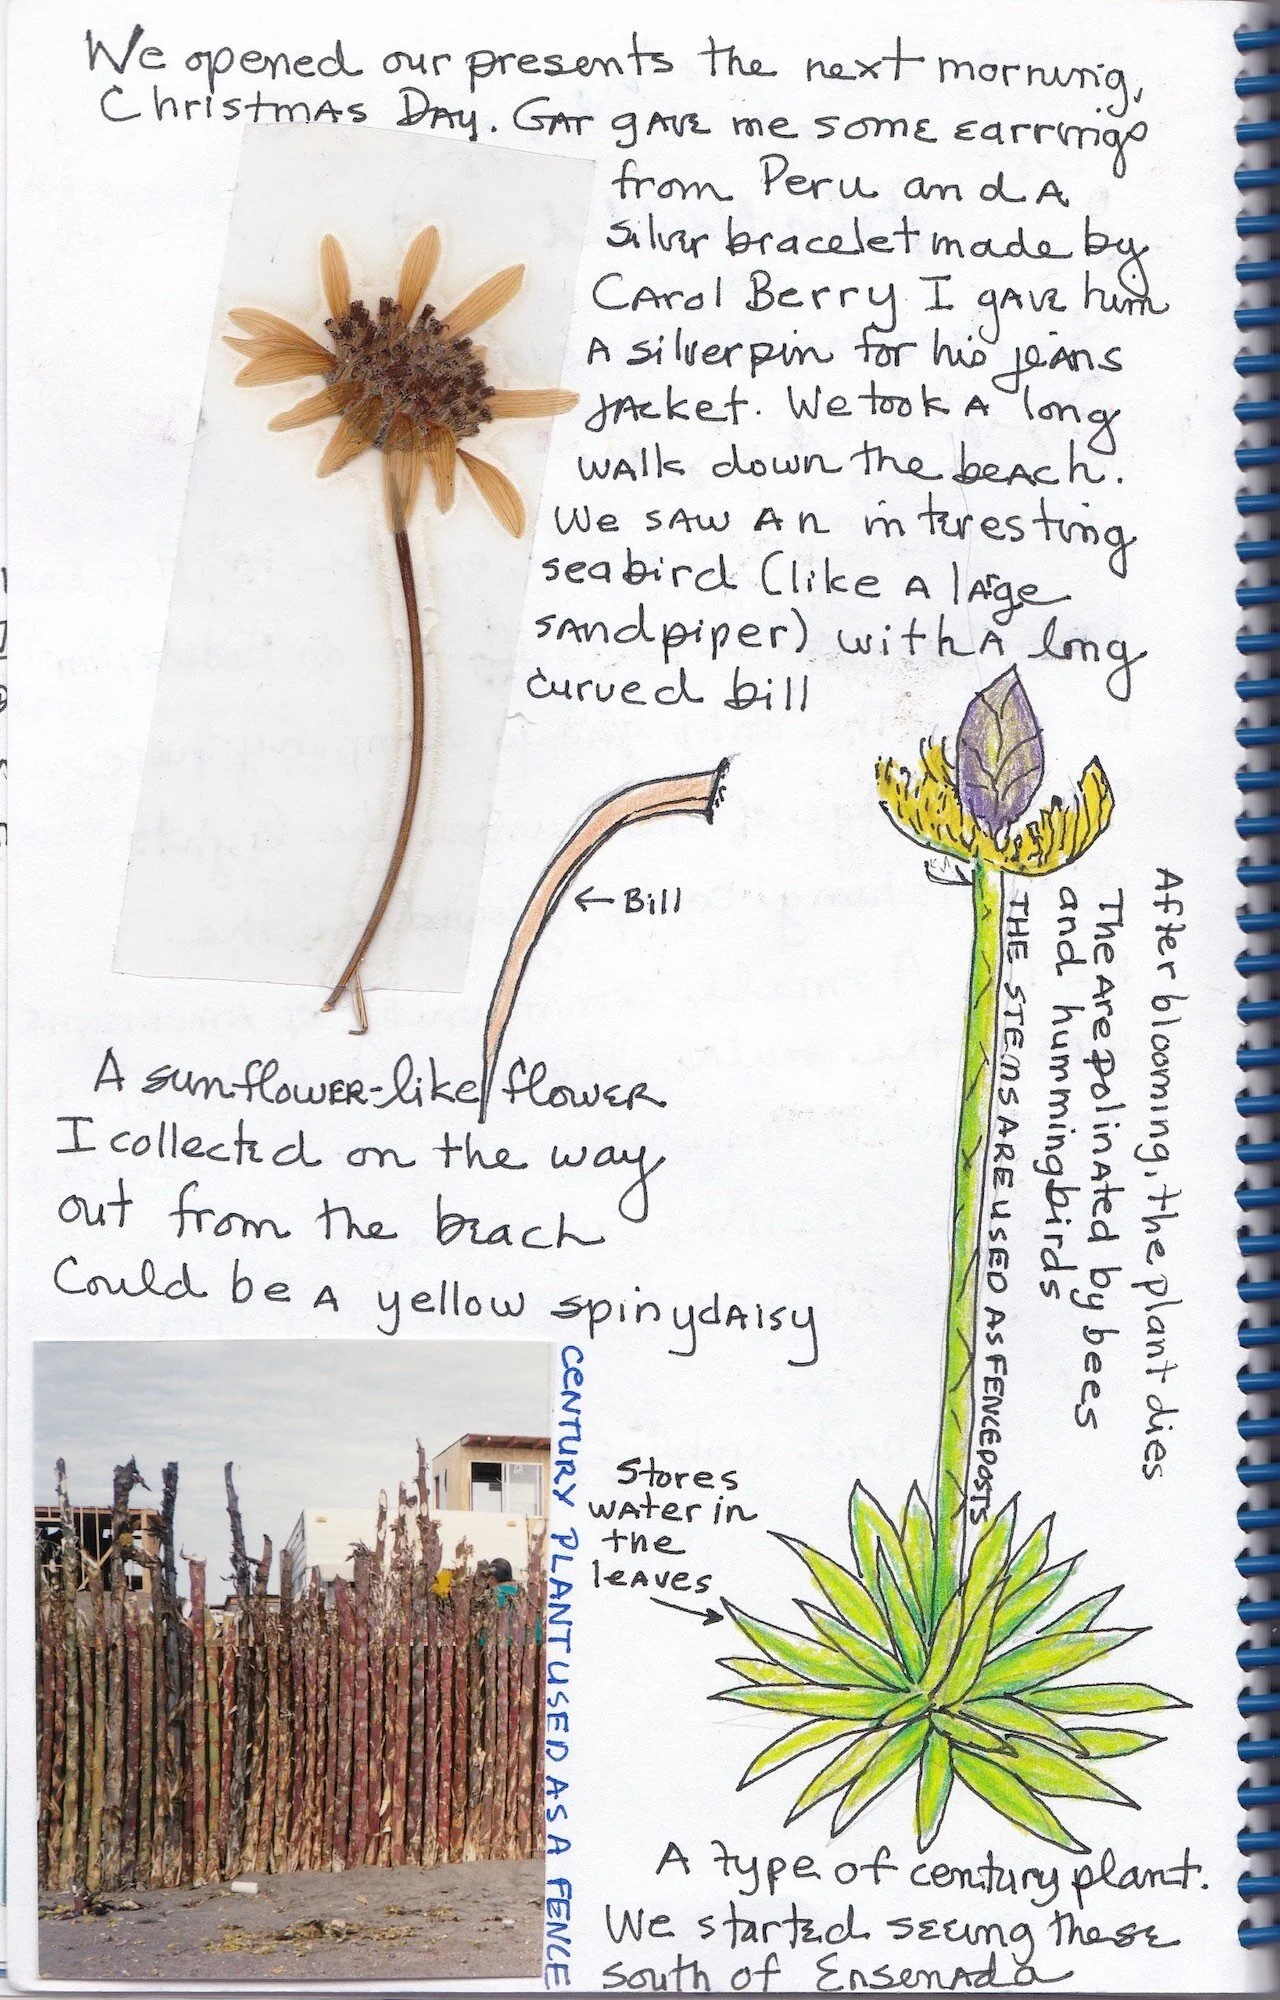 We opened our presents the next morning,
Christmas Day. Gar gave me some earrings
from Peru and a
silver bracelet made by
Carol Berry I gave him
a silver pin for his jeans
jacket. We took a long
walk down the beach.
We saw an interesting
seabird (like a large
sandpiper) with a long
curved bill
← Bill
A sunflower-like flower
I collected on the way
out from the beach
Could be a yellow spinydaisy
CENTURY PLANT USED AS A FENCE
After blooming, the plant dies
The are polinated by bees
and hummingbirds
THE STEMS ARE USED AS FENCEPOSTS
Stores
water in
the
leaves
A type of century plant.
We started seeing these
south of Ensenada